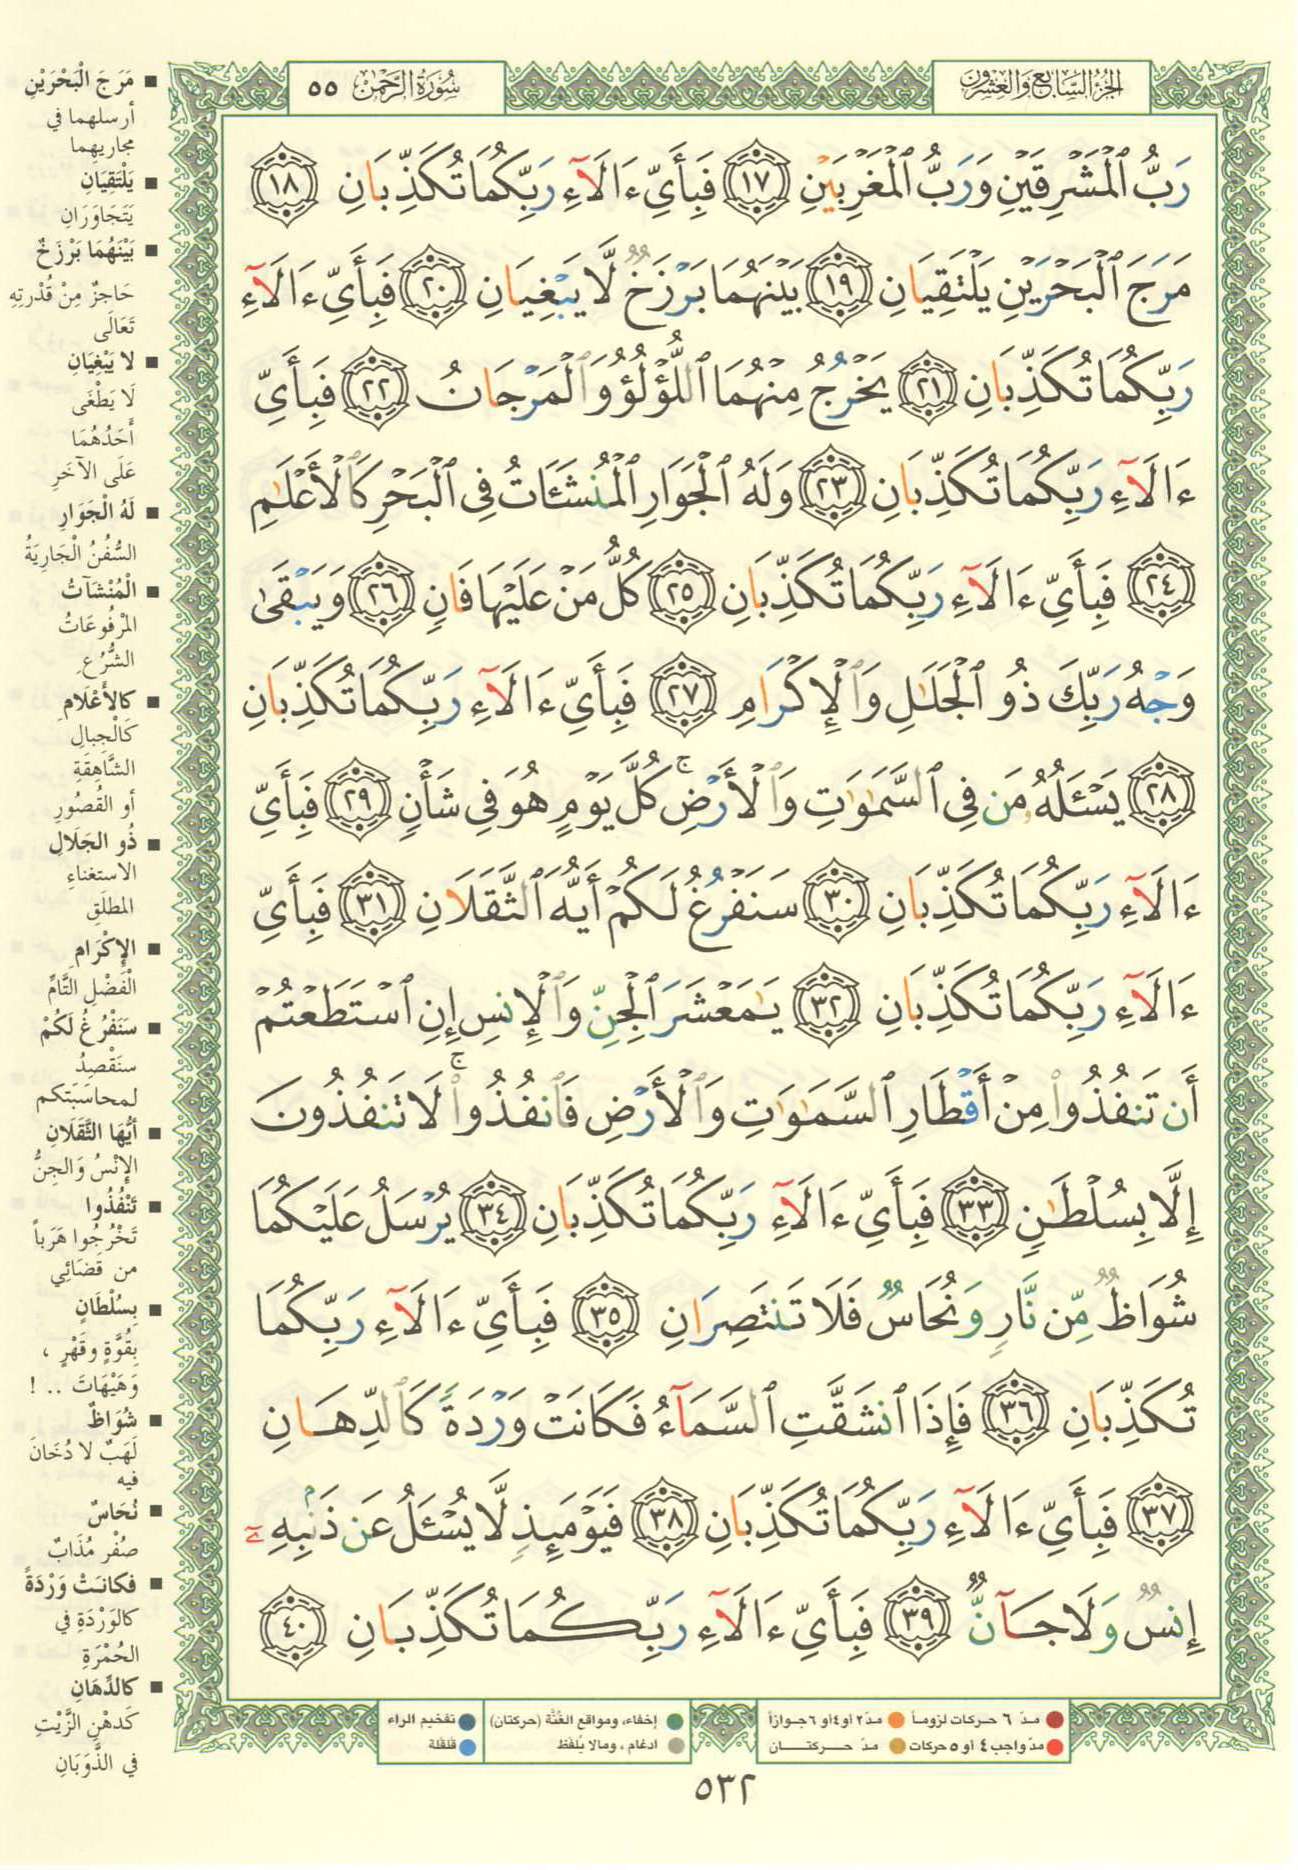 الجزء السابع والعشرون
سُورَةُ الرَّحْمٰن ٥٥
رَبُّ ٱلْمَشْرِقَيْنِ وَرَبُّ ٱلْمَغْرِبَيْنِ ١٧ فَبِأَىِّ ءَالَآءِ رَبِّكُمَا تُكَذِّبَانِ ١٨
مَرَجَ ٱلْبَحْرَيْنِ يَلْتَقِيَانِ ١٩ بَيْنَهُمَا بَرْزَخٌ لَّا يَبْغِيَانِ ٢٠ فَبِأَىِّ ءَالَآءِ
رَبِّكُمَا تُكَذِّبَانِ ٢١ يَخْرُجُ مِنْهُمَا ٱللُّؤْلُؤُ وَٱلْمَرْجَانُ ٢٢ فَبِأَىِّ
ءَالَآءِ رَبِّكُمَا تُكَذِّبَانِ ٢٣ وَلَهُ ٱلْجَوَارِ ٱلْمُنشَـَٔاتُ فِى ٱلْبَحْرِ كَٱلْأَعْلَـٰمِ
٢٤ فَبِأَىِّ ءَالَآءِ رَبِّكُمَا تُكَذِّبَانِ ٢٥ كُلُّ مَنْ عَلَيْهَا فَانٍ ٢٦ وَيَبْقَىٰ
وَجْهُ رَبِّكَ ذُو ٱلْجَلَـٰلِ وَٱلْإِكْرَامِ ٢٧ فَبِأَىِّ ءَالَآءِ رَبِّكُمَا تُكَذِّبَانِ
٢٨ يَسْـَٔلُهُۥ مَن فِى ٱلسَّمَـٰوَٰتِ وَٱلْأَرْضِ ۚ كُلَّ يَوْمٍ هُوَ فِى شَأْنٍ ٢٩ فَبِأَىِّ
ءَالَآءِ رَبِّكُمَا تُكَذِّبَانِ ٣٠ سَنَفْرُغُ لَكُمْ أَيُّهَ ٱلثَّقَلَانِ ٣١ فَبِأَىِّ
ءَالَآءِ رَبِّكُمَا تُكَذِّبَانِ ٣٢ يَـٰمَعْشَرَ ٱلْجِنِّ وَٱلْإِنسِ إِنِ ٱسْتَطَعْتُمْ
أَن تَنفُذُوا۟ مِنْ أَقْطَارِ ٱلسَّمَـٰوَٰتِ وَٱلْأَرْضِ فَٱنفُذُوا۟ ۚ لَا تَنفُذُونَ
إِلَّا بِسُلْطَـٰنٍ ٣٣ فَبِأَىِّ ءَالَآءِ رَبِّكُمَا تُكَذِّبَانِ ٣٤ يُرْسَلُ عَلَيْكُمَا
شُوَاظٌ مِّن نَّارٍ وَنُحَاسٌ فَلَا تَنتَصِرَانِ ٣٥ فَبِأَىِّ ءَالَآءِ رَبِّكُمَا
تُكَذِّبَانِ ٣٦ فَإِذَا ٱنشَقَّتِ ٱلسَّمَآءُ فَكَانَتْ وَرْدَةً كَٱلدِّهَانِ
٣٧ فَبِأَىِّ ءَالَآءِ رَبِّكُمَا تُكَذِّبَانِ ٣٨ فَيَوْمَئِذٍ لَّا يُسْـَٔلُ عَن ذَنۢبِهِۦٓ
إِنسٌ وَلَا جَآنٌّ ٣٩ فَبِأَىِّ ءَالَآءِ رَبِّكُمَا تُكَذِّبَانِ ٤٠
■ مَرَجَ الْبَحْرَيْنِ
أرسلهما في
مجاريهما
■ يَلْتَقِيَانِ
يَتَجَاوَرَانِ
■ بَيْنَهُمَا بَرْزَخٌ
حَاجزٌ مِنْ قُدْرتِهِ
تَعَالَى
■ لا يَبْغِيَانِ
لَا يَطْغَى
أَحَدُهُمَا
عَلَى الآخَرِ
■ لَهُ الْجَوَارِ
السُّفُنُ الْجَارِيَةُ
■ الْمُنْشَآتُ
المَرْفُوعَاتُ
الشُّرُعِ
■ كالأَعْلَامِ
كَالْجِبالِ
الشَّاهِقَةِ
أو القُصُورِ
■ ذُو الجَلَالِ
الاستغناءِ
المطلَقِ
■ الإِكْرَامِ
الْفَضْلِ التَّامِّ
■ سَنَفْرُغُ لَكُمْ
سنَقْصِدُ
لمحاسَبَتكم
■ أيُّهَا الثَّقَلَانِ
الإنْسُ وَالجِنُّ
■ تَنْفُذُوا
تَخْرُجُوا هَرَباً
من قَضَائِي
■ بِسُلْطَانٍ
بِقُوَّةٍ وقَهْرٍ ،
وَهَيْهَاتَ .. !
■ شُوَاظٌ
لَهَبٌ لا دُخَانَ
فيه
■ نُحَاسٌ
صُفْر مُذَابٌ
■ فكانَتْ وَرْدَةً
كالوَرْدَةِ في
الحُمْرَةِ
■ كالدِّهَانِ
كَدهْنِ الزَّيْتِ
في الذَّوَبَانِ
مدّ ٦ حركات لزوماً
مدّ ٢ أو ٤ أو ٦ جوازاً
مدّ واجب ٤ أو ٥ حركات
مدّ حركتان
إخفاء، ومواقع الغُنَّة (حركتان)
ادغام ، ومالا يُلفَظ
تفخيم الراء
قلقلة
٥٣٢